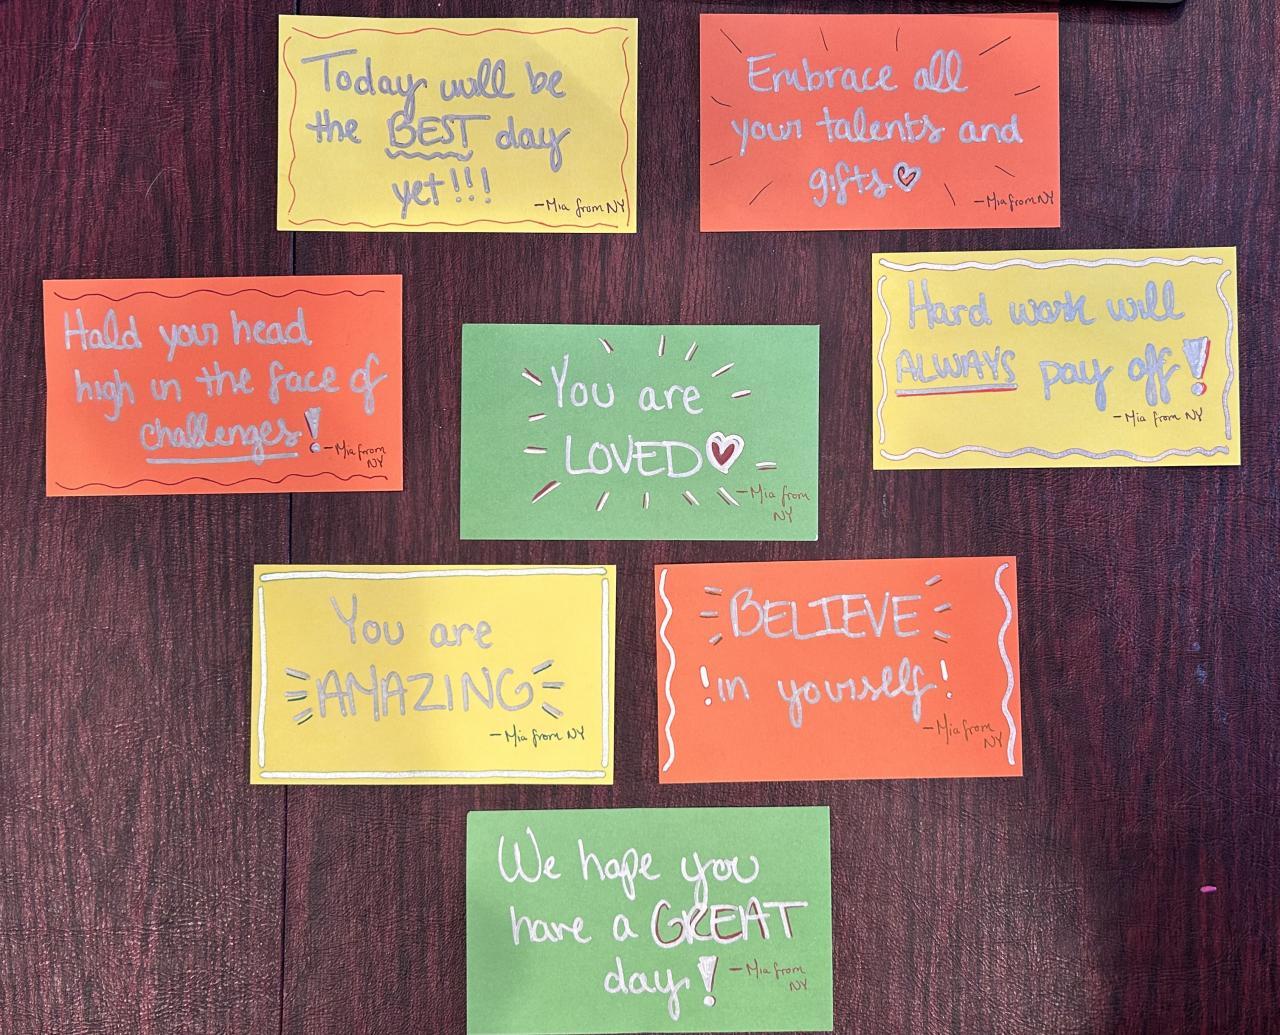 Today will be
the BEST day
yet!!!
-Mia from NY
Embrace all
your talents and
gifts
-Mia from NY
Hold your head
high in the face of
challenges!
-Mia from
NY
You are
LOVED
-Mia from
NY
Hard work will
ALWAYS pay off!
-Mia from NY
You are
AMAZING
-Mia from NY
BELIEVE
!in yourself!
-Mia from
NY
We hope you
have a GREAT
day!
-Mia from
NY